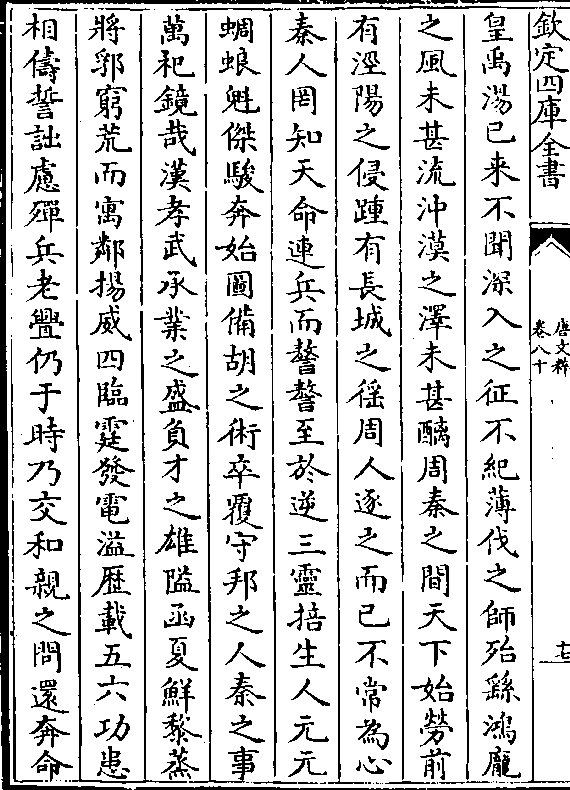 欽定四庫全書
唐文粹
卷八十
十三
皇禹湯已来不聞深入之征不紀薄伐之師殆繇鴻龐
之風未甚流沖漠之澤未甚醨周秦之間天下始勞前
有涇陽之侵踵有長城之徭周人逐之而已不常為心
秦人罔知天命連兵而謷謷至於逆三靈掊生人元元
蜩蜋魁傑駿奔始圖備胡之術卒覆守邦之人秦之事
萬祀鏡哉漢孝武承業之盛負才之雄隘函夏鮮黎蒸
將郛窮荒而寓鄰揚威四臨霆發電溢歴載五六功患
相儔誓詘慮殫兵老舋仍于時乃交和親之問還奔命